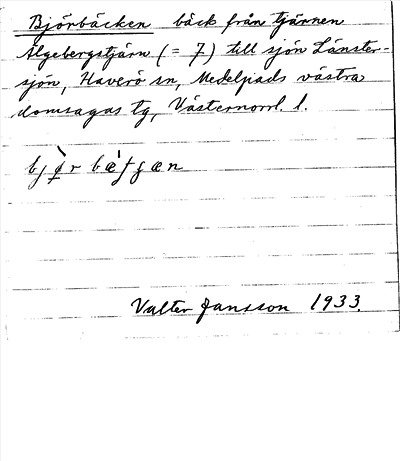 Björbäcken bäck från tjärnen
Älgebergstjärn (= 7) till sjön Länster-
sjön, Haverö sn, Medelpads västra
domsagas tg, Västernorrl. l.
bjø̀r bæ̀fgæn
Valter Jansson 1933.